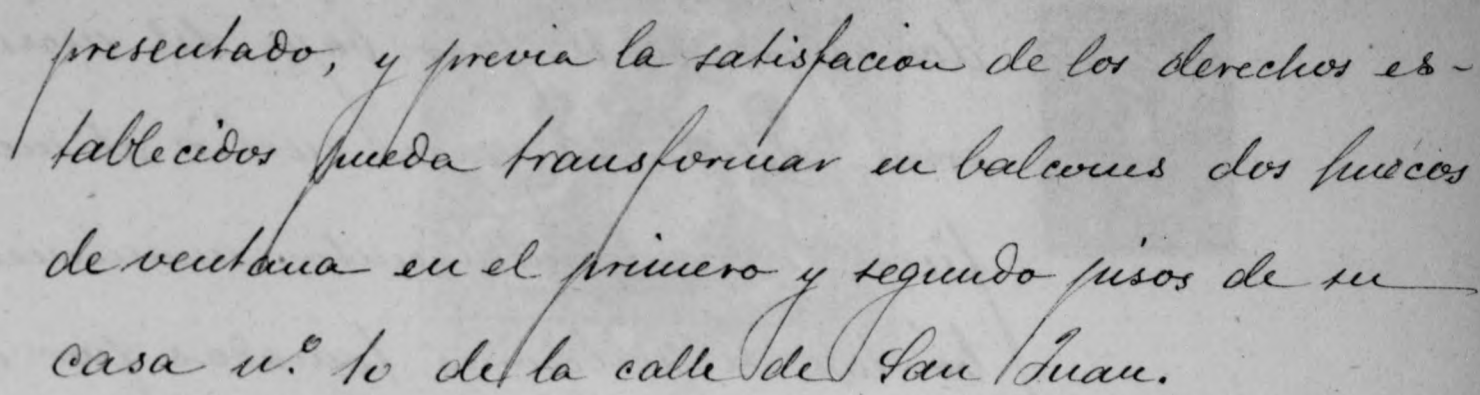 presentado, y previa la satisfacion de los derechos es-
tablecidos pueda transformar en balcones dos huecos
de ventana en el primero y segundo pisos de su
casa n.º 10 de la calle de San Juan.